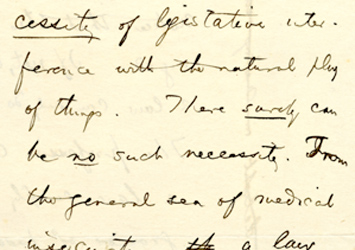 cessity of legislative inter-
ference with the natural play
of things. There surely can
be no such necessity. From
the general sea of medical
a law